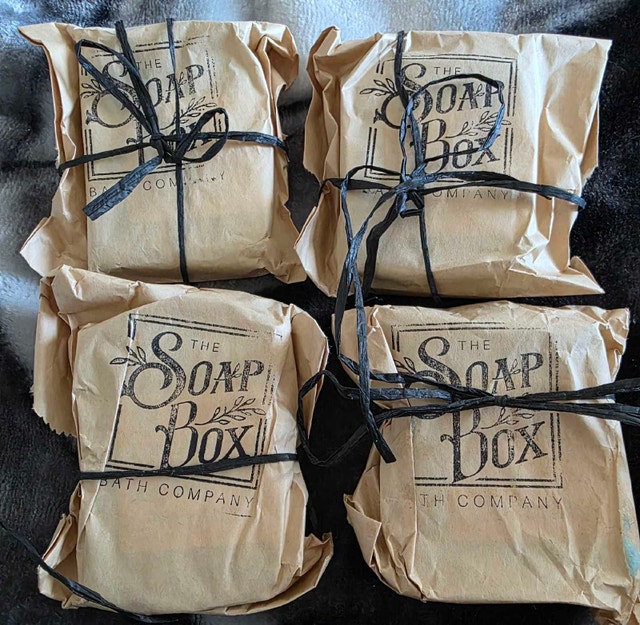 THE
SOAP
BOX
BATH COMPANY
THE
SOAP
BOX
COMPANY
THE
SOAP
BOX
BATH COMPANY
THE
SOAP
BOX
TH COMPANY